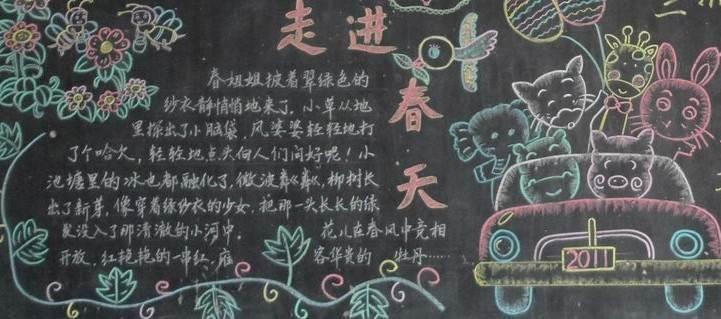 走进春天
春姐姐披着翠绿色的
纱衣静悄悄地来了，小草从地
里探出了小脑袋，风婆婆轻轻地打
了个哈欠，轻轻地点头向人们问好呢！小
池塘里的冰也都融化了，微波粼粼，柳树长
出了新芽，像穿着绿纱衣的少女，把那一头长长的绿
发没入了那清澈的小河中。 花儿在春风中竞相
开放，红艳艳的一串红，雍容华贵的 牡丹……
2011